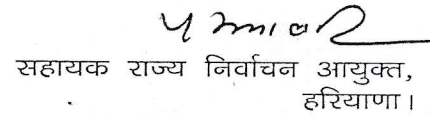 सहायक राज्य निर्वाचन आयुक्त,
हरियाणा।